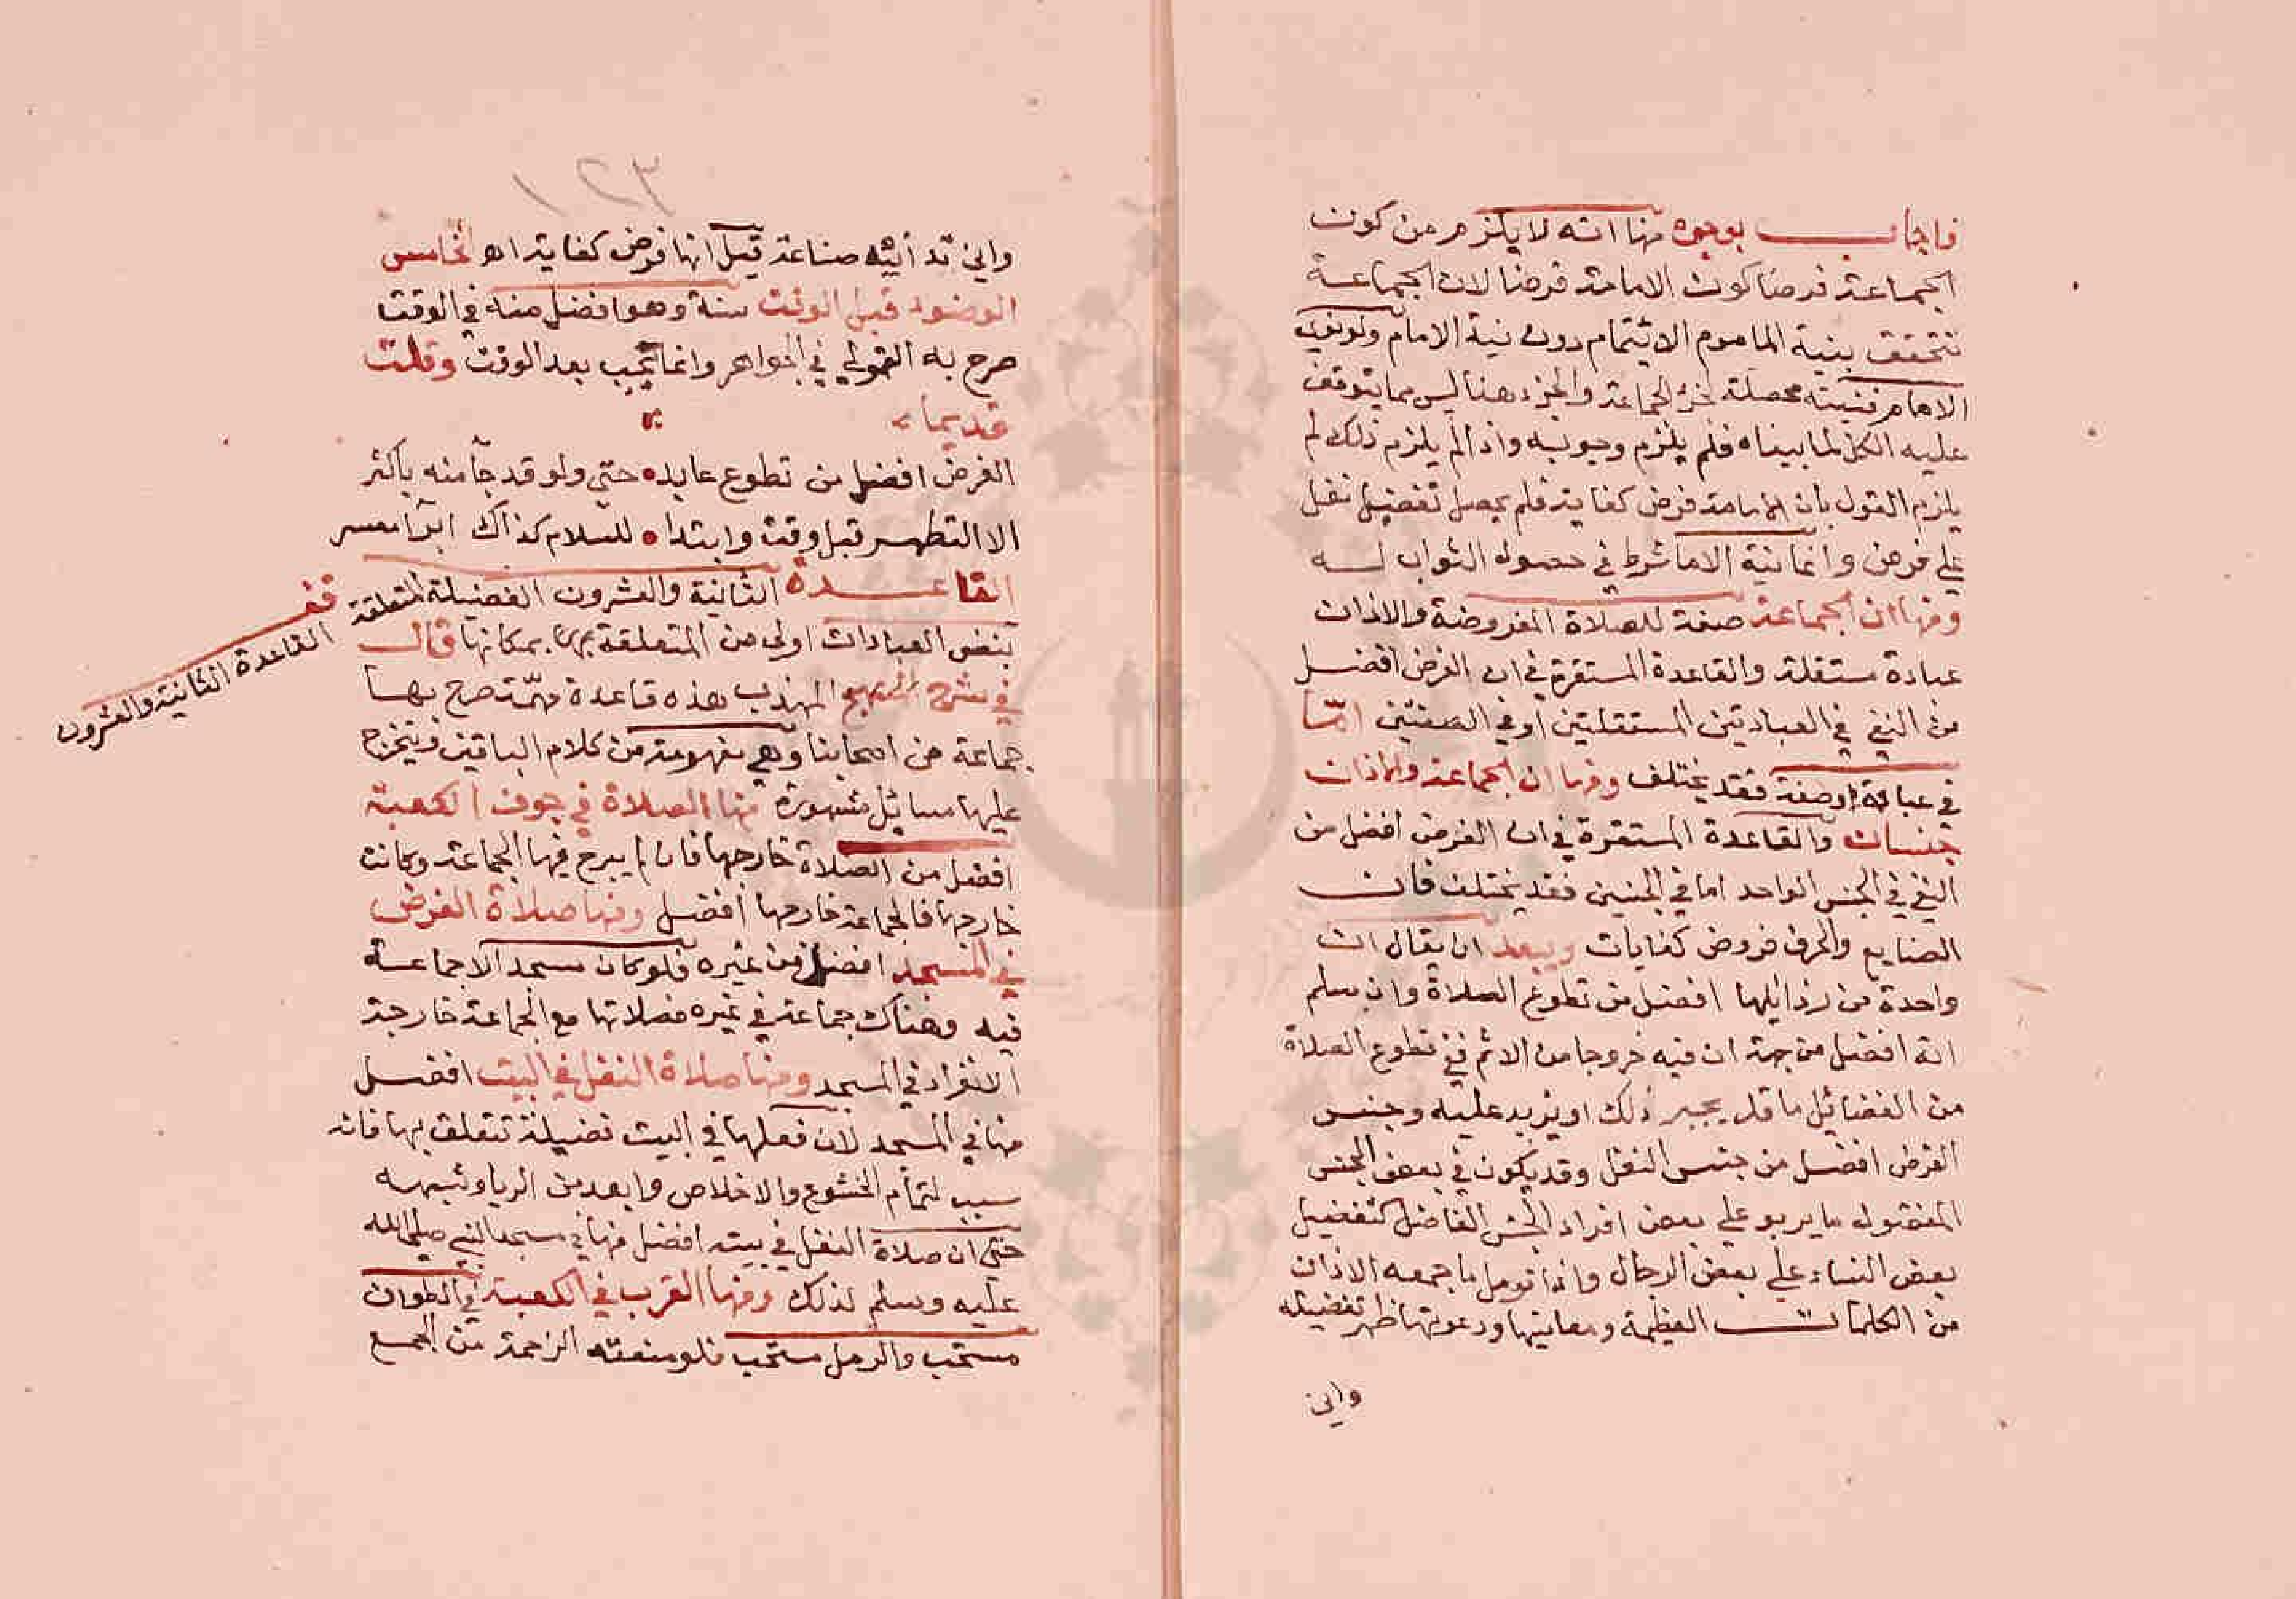 فاجاب بوجوه منها انه لا يلزم من كون
الجماعة فرضا كون الامامة فرضا لان الجماعة
تتحقق بنية الماموم الائتمام دون نية الامام ولو نوى
الامام فنيته محصلة لجزء الجماعة والجزء هنا ليس مما يتوقف
عليه الكل لما بيناه فلم يلزم وجوبه واذا لم يلزم ذلك لم
يلزم القول بان الامامة فرض كفاية فلم يحصل تفضيل نفل
على فرض وانما نية الاما شرط في حصول الثواب له
ومنها ان الجماعة صفة للصلاة المفروضة والاذان
عبادة مستقلة والقاعدة المستقرة في ان الفرض افضل
من النفل في العبادتين المستقلتين او في الصفتين امّا
في عبادة وصفة فقد يختلف ومنها ان الجماعة والاذان
جنسان والقاعدة المستقرة في ان الفرض افضل من
النفل في الجنس الواحد اما في الجنسين فقد يختلف فان
الصنايع والحرف فروض كفايات ويبعد ان يقال ان
واحدة من رذايلها افضل من تطوع الصلاة وان سلم
انه افضل من جهة ان فيه خروجا من الاثم ففي تطوع الصلاة
من الفضائل ما قد يجبر ذلك او يزيد عليه وجنس
الفرض افضل من جنس النفل وقد يكون في بعض الجنس
المفضول ما يربو على بعض افراد الجنس الفاضل كتفضيل
بعض النساء على بعض الرجال واذا تومل ما جمعه الاذان
من الكلمات العظيمة ومعانيها ودعوتها ظهر تفضيله
واني
١٢٣
واني تدانيه صناعة قيل انها فرض كفاية اه الخامس
الوضوء قبل الوقت سنة وهو افضل منه في الوقت
صرح به القمولي في الجواهر وانما يجب بعد الوقت وقلت
قديما
الفرض افضل من تطوع عابده حتى ولو قد جآ منه باكثر
الا التطهر قبل وقت وابتداه للسلام كذاك ابرا معسر
القاعدة الثانية والعشرون الفضيلة المتعلقة
بنفس العبادات اولى من المتعلقة بمكانها قال
في شرح المهذب هذه قاعدة مهمّة صرح بها
جماعة من اصحابنا وهي مفهومة من كلام الباقين ويتخرج
عليها مسائل مشهورة منها الصلاة في جوف الكعبة
افضل من الصلاة خارجها فان لم يرج فيها الجماعة وكانت
خارجها فالجماعة خارجها افضل ومنها صلاة الفرض
في المسجد افضل من غيره فلو كان مسجد لا جماعة
فيه وهناك جماعة في غيره فصلاتها مع الجماعة خارجة
الانفراد في المسجد ومنها صلاة النفل في البيت افضل
منها في المسجد لان فعلها في البيت فضيلة تتعلق بها فانه
سبب لتمام الخشوع والاخلاص وابعد من الريا وشبهه
حتى ان صلاة النفل في بيته افضل منها في مسجد النبي صلى الله
عليه وسلم لذلك ومنها القرب في الكعبة في الطواف
مستحب والرمل مستحب فلو منعته الزحمة من الجمع
قف
القاعدة الثانية والعشرون